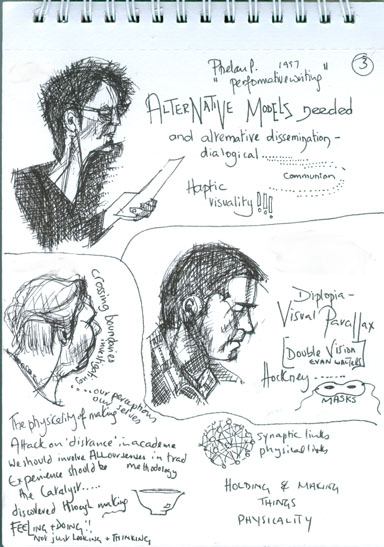 Phelan P. 1997
"performative writing"
3
ALTERNATIVE MODELS needed
and alternative dissemination -
dialogical
communion
Haptic
visuality!!!
crossing boundaries
investigating
our perceptions
ourselves
Diplopia -
Visual Parallax
[Double Vision]
EVAN WALTERS
Hockney
MASKS
The physicality of making
Attack on 'distance' in academe
We should involve ALL our senses in trad
Experience should be methodology
the Catalyst.....
discovered through making
FEELING + DOING!!
Not just LOOKING + THINKING
synaptic links
physical links
HOLDING & MAKING
THINGS
PHYSICALITY